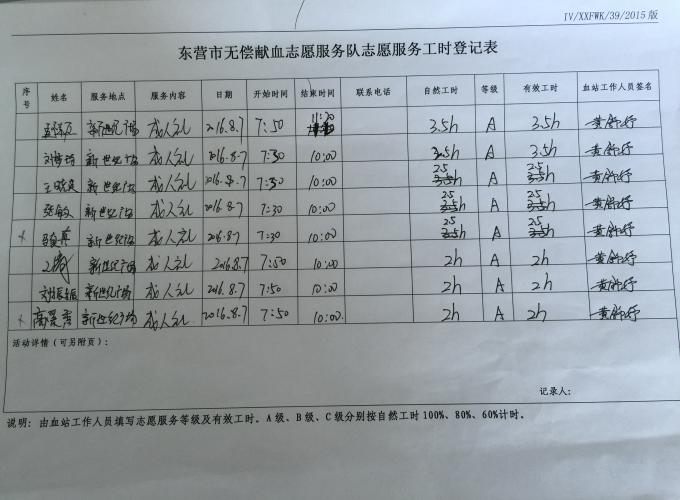 IV/XXFWK/39/2015 版
东营市无偿献血志愿服务队志愿服务工时登记表
序号 姓名 服务地点 服务内容 日期 开始时间 结束时间 联系电话 自然工时 等级 有效工时 血站工作人员签名
新世纪广场 成人礼 2016.8.7 7:50 11:20 3.5h A 3.5h
新世纪广场 成人礼 2016.8.7 7:30 10:00 3.5h A 3.5h
新世纪广场 成人礼 2016.8.7 7:30 10:00 25 3.5h A 25 3.5h
张敏 新世纪广场 成人礼 2016.8.7 7:30 10:00 25 3.5h A 25 3.5h
x 新世纪广场 成人礼 2016.8.7 7:30 10:00 25 3.5h A 25 3.5h
新世纪广场 成人礼 2016.8.7 7:50 10:00 2h A 2h
新世纪广场 成人礼 2016.8.7 7:50 10:00 2h A 2h
x 新世纪广场 成人礼 2016.8.7 7:50 10:00 2h A 2h
活动详情（可另附页）：
记录人：
说明：由血站工作人员填写志愿服务等级及有效工时。A 级、B 级、C 级分别按自然工时 100%、80%、60%计时。